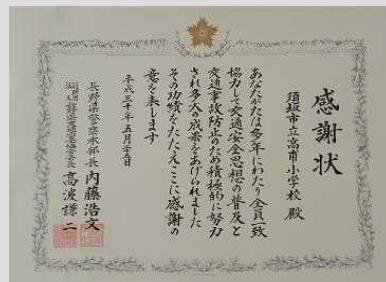 感謝状
須坂市立高甫小学校 殿
あなたがたは多年にわたり全員一致
協力して交通安全思想の普及と
交通事故防止のため積極的に努力
され多大の成果をあげられました
その功績をたたえここに感謝の
意を表します
平成三十年五月十五日
長野県警察本部長 内藤浩文
高波謙二